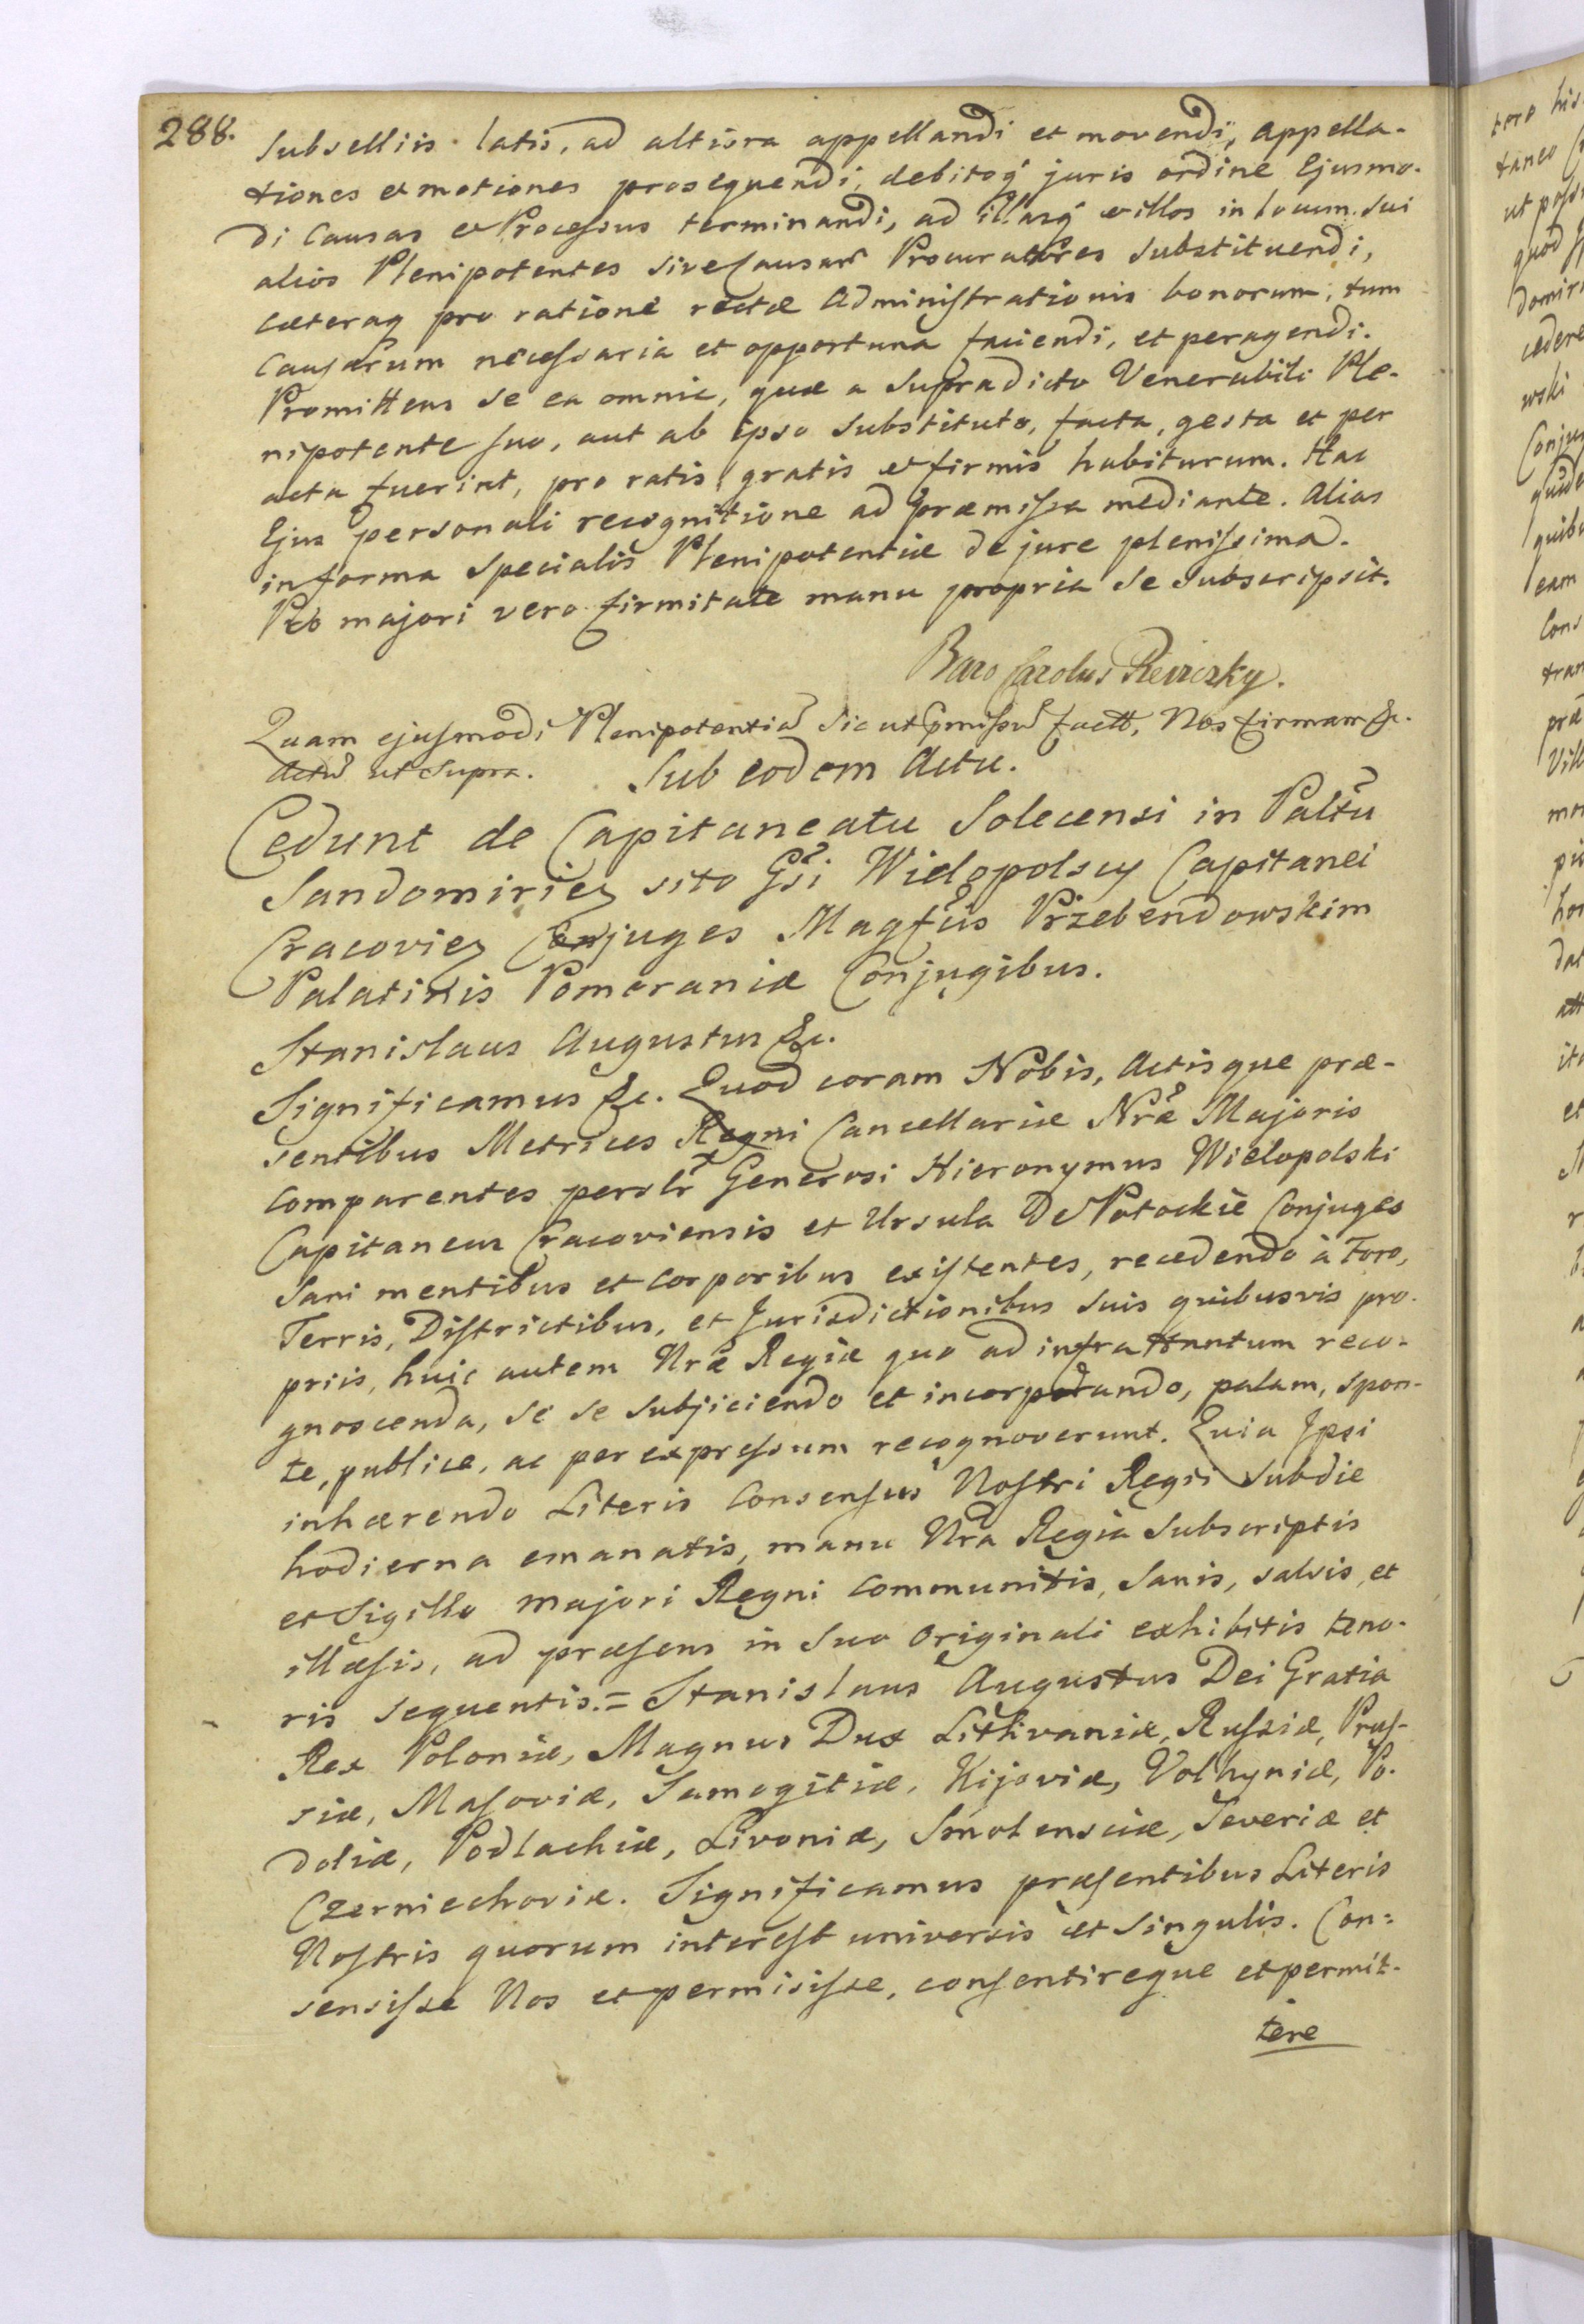 288.
Subselliis latis, ad altiora appellandi et movendi, appella-
tiones et motiones prosequendi, debitoq́ juris ordine Ejusmo-
di Causas et Processus terminandi, ad illasq́ et illos in locum sui
alios Plenipotentes sive Causarũ Procuratores substituendi,
cæteraq pro ratione rectæ Administrationis bonorum, tum
Causarum necessaria et opportuna faciendi, et peragendi.
Promittens se ea omnia, quæ a supradicto Venerabili Ple-
nipotente suo, aut ab ipso substituto, facta, gesta et per
acta fuerint, pro ratis, gratis et firmis habiturum. Hac
Ejus personali recognitione ad præmissa mediante. Alias
in forma specialis Plenipotentiæ de jure plenissima.
Pro majori vero firmitate manu propria se subscripsit.
Baro Carolus Reviczky.
Quam ejusmodi Plenipotentiã sic ut p̃missũ factã, Nos firmam &c.
Actũ ut supra. Sub eodem Actu.
Cedunt de Capitaneatu Solecensi in Paltũ
Sandomirieṉ sito Gsi Wielopolscy Capitanei
Cracovieṉ Conjuges Magfcis Przebendowskim
Palatinis Pomeraniæ Conjugibus.
Stanislaus Augustus &c.
Significamus &c. Quod coram Nobis, Actisque præ-
sentibus Metrices Regni Cancellariæ Nræ Majoris
comparentes persolr Generosi Hieronymus Wielopolski
Capitaneus Cracoviensis et Ursula De Potockie Conjuges
sani mentibus et corporibus existentes, recedendo à Foro,
Terris, Districtibus, et Jurisdictionibus suis quibusvis pro-
priis, huic autem Nræ Regiæ quo ad infra ttantum reco-
gnoscenda, se se subjiciendo et incorporando, palam, spon-
te, publice, ac per expressum recognoverunt. Quia Ipsi
inhærendo Literis Consensus Nostri Regii sub die
hodierna emanatis, manu Nra Regia subscriptis
et Sigillo majori Regni communitis, sanis, salvis, et
illæsis, ad præsens in suo Originali exhibitis teno-
ris sequentis. = Stanislaus Augustus Dei Gratia
Rex Poloniæ, Magnus Dux Lithvaniæ, Russiæ, Prus-
siæ, Masoviæ, Samogitiæ, Kijoviæ, Volhyniæ, Po-
doliæ, Podlachiæ, Livoniæ, Smolensciæ, Severiæ et
Czerniechoviæ. Significamus præsentibus Literis
Nostris quorum interest universis et singulis. Con=
sensisse Nos et permisisse, consentireque et permit-
tere